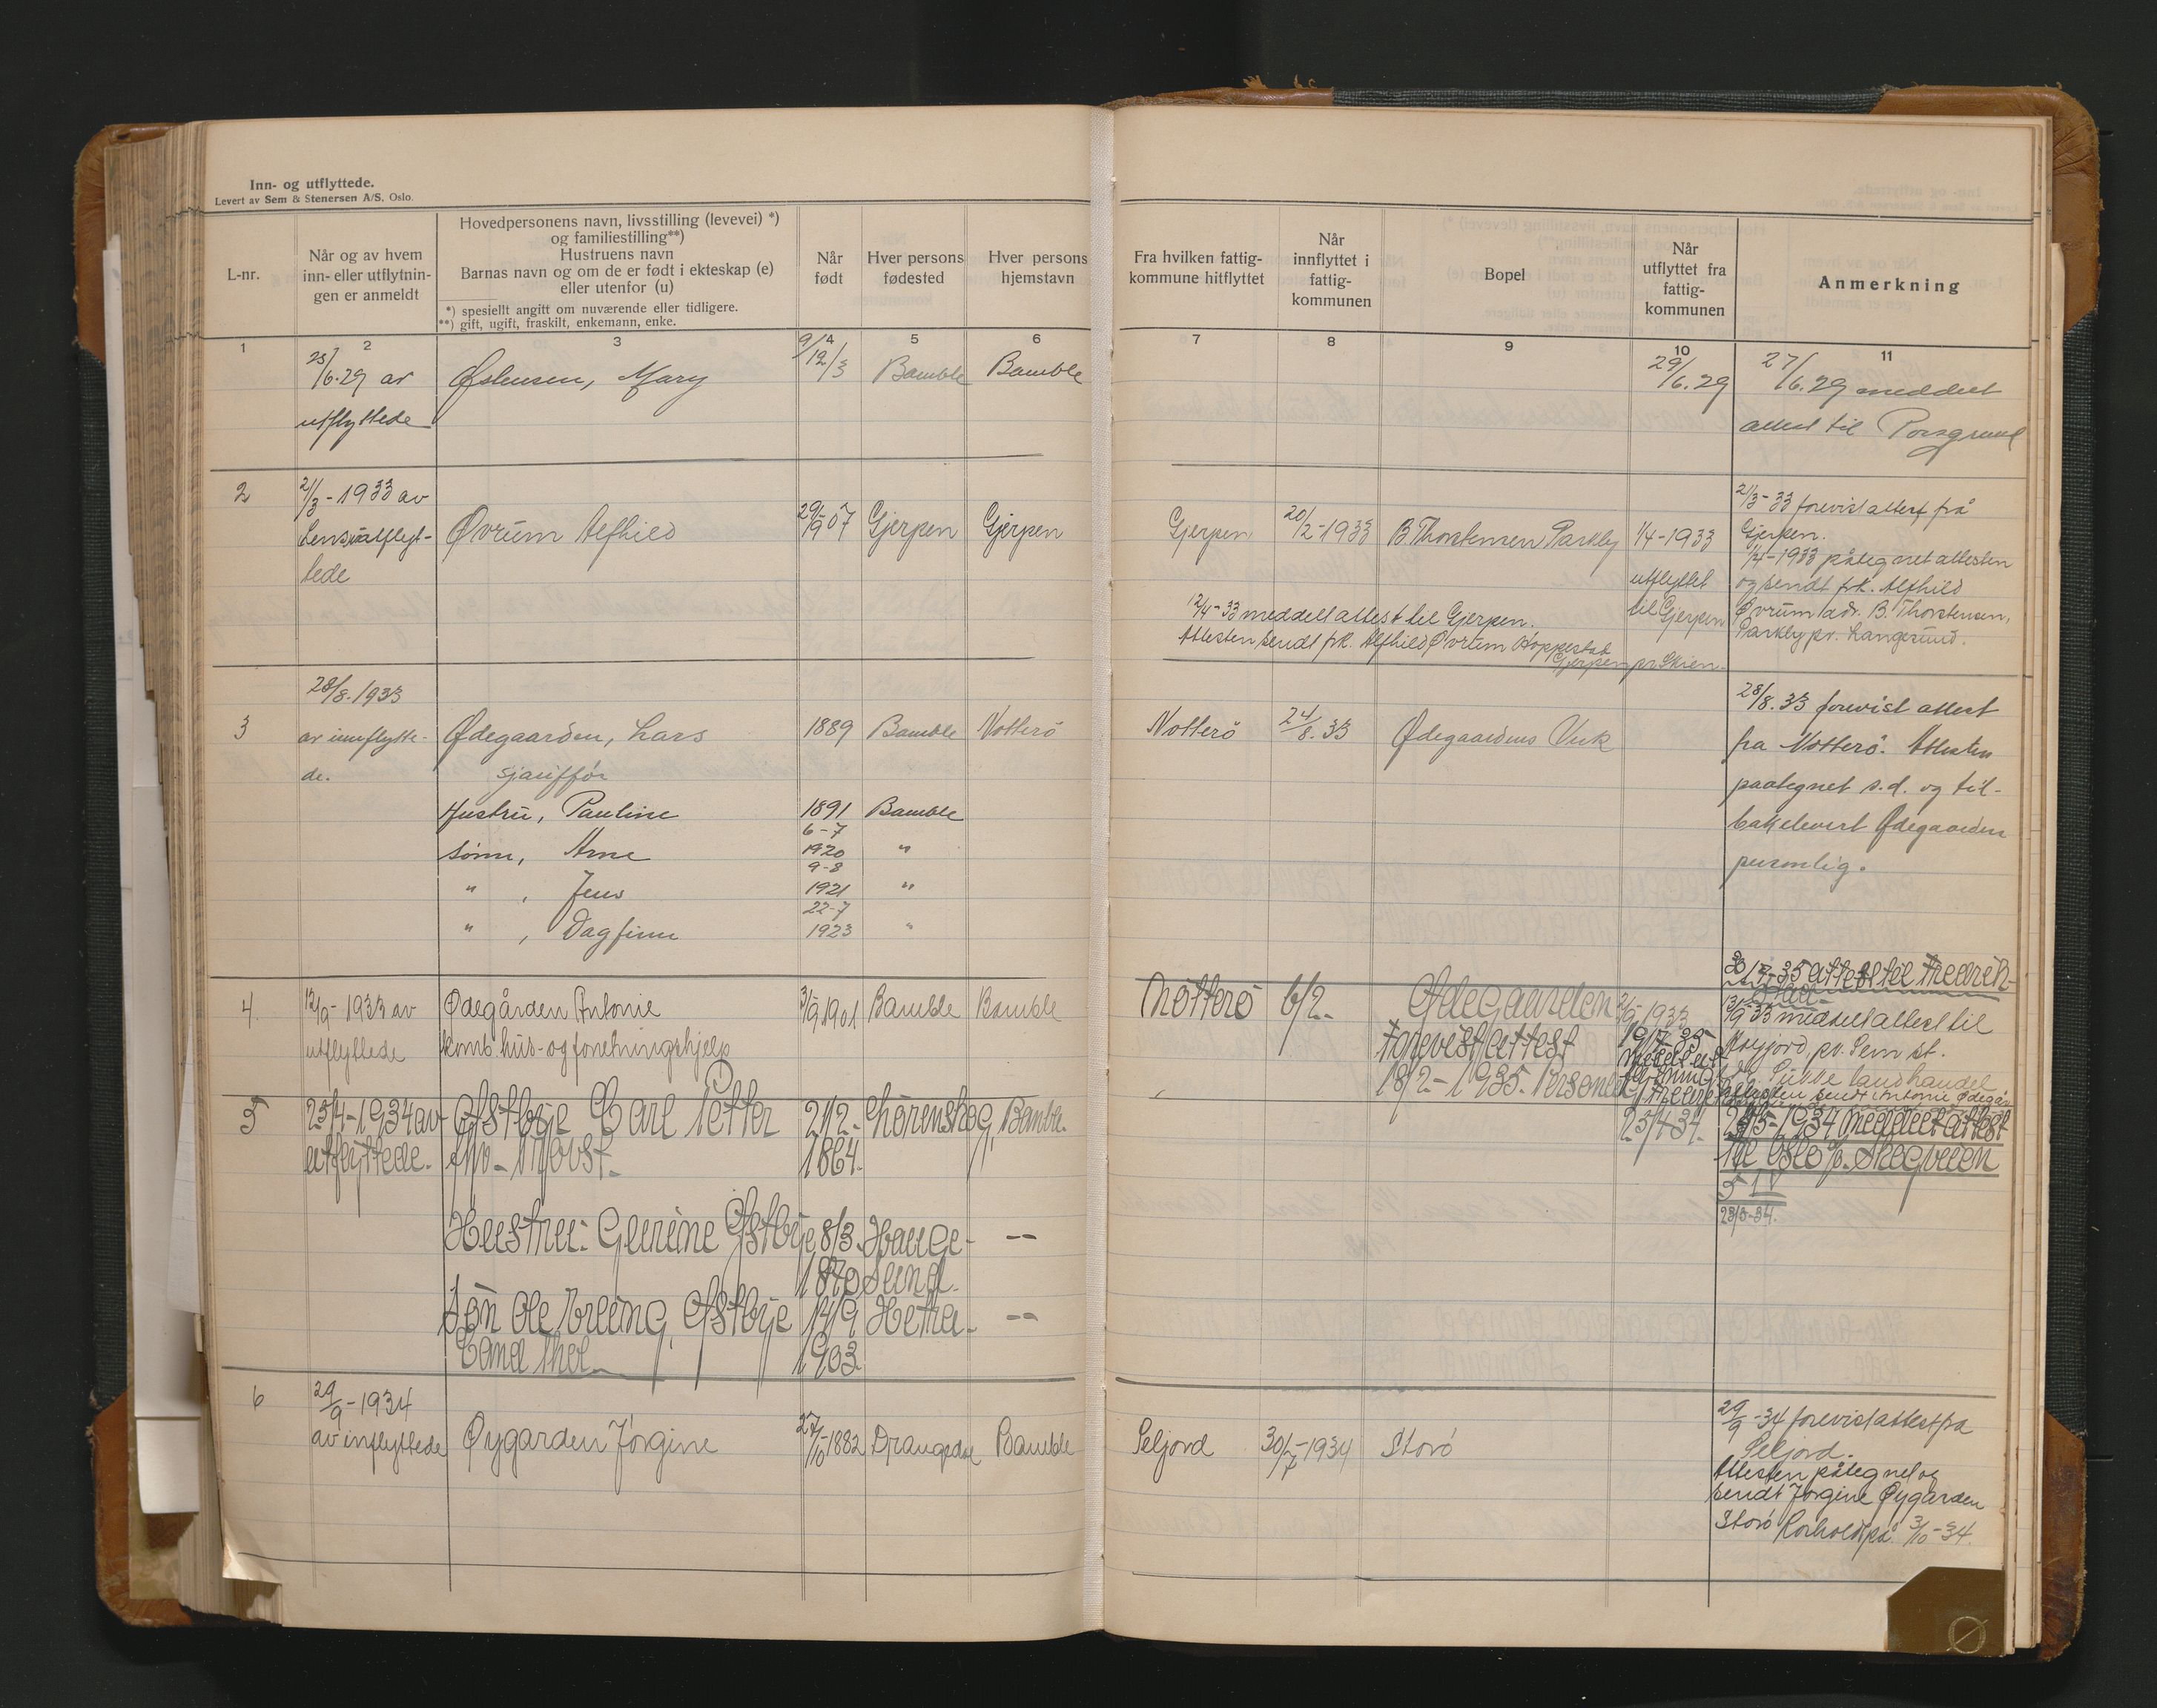 Inn- og utflyttede.
Levert av Sem & Stenersen A/S. Oslo.
L-nr.
Når og av hvem
inn- eller utflytnin-
gen er anmeldt
Hovedpersonens navn, livsstilling (levevei) *)
og familiestilling**)
Hustruens navn
Barnas navn og om de er født i ekteskap (e)
eller utenfor (u)
*) spesiellt angitt om nuværende eller tidligere.
**) gift, ugift, fraskilt, enkemann, enke.
Når
født
Hver persons
fødested
Hver persons
hjemstavn
Fra hvilken fattig-
kommune hitflyttet
Når
innflyttet i
fattig-
kommunen
Bopel
Når
utflyttet fra
fattig-
kommunen
Anmerkning
1 2 3 4 5 6 7 8 9 10 11
25/6.29 av
utflyttede
Østensen, Mary
9/12/3
Bamble
Bamble
29/6.29
27/6.29 meddelt
attest til Porsgrund
2
21/3-1933 av
utflyt-
tede
Øvrum Alfhild
29/9-07
Gjerpen
Gjerpen
Gjerpen
20/2-1933
B Thorstensen Parkby
1/4-1933
utflyttet
til Gjerpen
21/3-33 forevist attest frå
Gjerpen.
1/4-1933 påtegnet attesten
og sendt frk. Alfhild
Øvrum adr. B. Thorstensen,
Parkby pr. Langesund.
12/4-33 meddelt attest til Gjerpen.
Attesten sendt frk. Alfhild Øvrum Hoppestad
Gjerpen pr Skien.
3
28/8.1933
av innflytte-
de.
Ødegaarden, Lars
sjauffør
1889
Bamble
Nøtterø
Nøtterø
24/8.33
Ødegaardens Verk
28/8.33 forevist attest
fra Nøtterø. Attesten
paategnet s.d. og til-
bakelevert Ødegaarden
personlig.
Hustru, Pauline
1891
Bamble
6-7
sønn, Arne
1920
"
9-8
" , Jens
1921
"
22-7
" , Dagfinn
1923
"
4
12/9-1933 av
utflyttede
Ødegården Antonie
komb. hus- og forretningshjelp
3/9.1901
Bamble
Bamble
Nøtterø
6/2.
Ødegaarden
Forevist attest
18/2-1935. Personlig
2/9-1933
19/7-35
/7-35 attest til Fredrik-
stad
13/9 33 meddelt attest til
Høyjord, pr. Sem st.
landhandel
Attesten sendt Antonie Ødegår
5
23/4-1934 av
utflyttede.
Østbye Carl Petter
21/2.
1864.
Lørenskog
Bamble.
23/4 34.
23/5-1934 meddelt attest
til Oslo
23/5-34.
Hustru: Gurine Østbye
8/3.
1870
Hauge-
sund.
--
Søn Ole Erling Østbye
14/9
1903
Hetra-
--
Cand
6
29/9-1934
av inflyttede
Øygarden Jørgine
27/10-1882
Drangedal
Bamble
Seljord
30/7-1934
Storø
29/9-34 forevist attest fra
Seljord.
Attesten påtegnet og
sendt Jørgine Øygarden
Storø Herhold på 3/10-34.
Ø